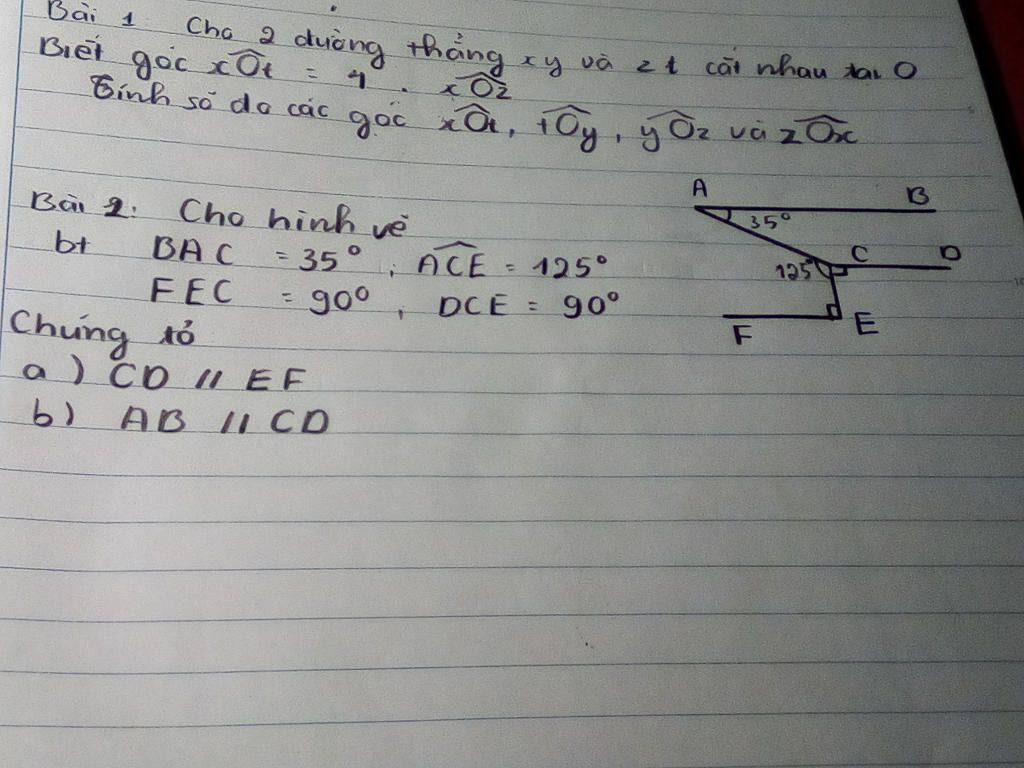 Bài 1 Cho 2 đường thẳng xy và zt cắt nhau tại O
Biết góc xOt = 4 . xOz
Tính số đo các góc xOt, tOy, yOz và zOx
Bài 2: Cho hình vẽ
bt BAC = 35° ; ACE = 125°
FEC = 90° , DCE = 90°
Chứng tỏ
a) CD // EF
b) AB // CD
A B
35°
C D
125°
F E